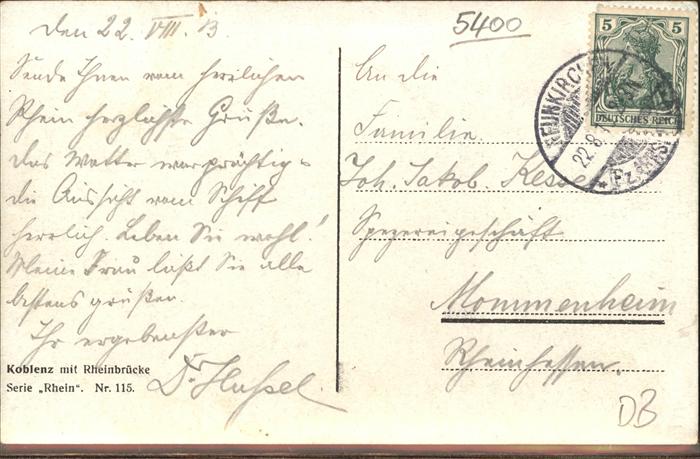 Den 22. VIII. 13.
Sende Ihnen vom herrlichen
Rhein herzlichste Grüße.
Das Wetter war prächtig -
die Aussicht vom Schiff
herrlich. Leben Sie wohl!
Meine Frau läßt Sie alle
bestens grüßen.
Ihr ergebenster
Dr
Koblenz mit Rheinbrücke
Serie „Rhein". Nr. 115.
5400
5 5
DEUTSCHES REICH
22.8.
An die
Familie
Joh. Jakob.
Spezereigeschäft
Mommenheim
Rheinhessen.
DB